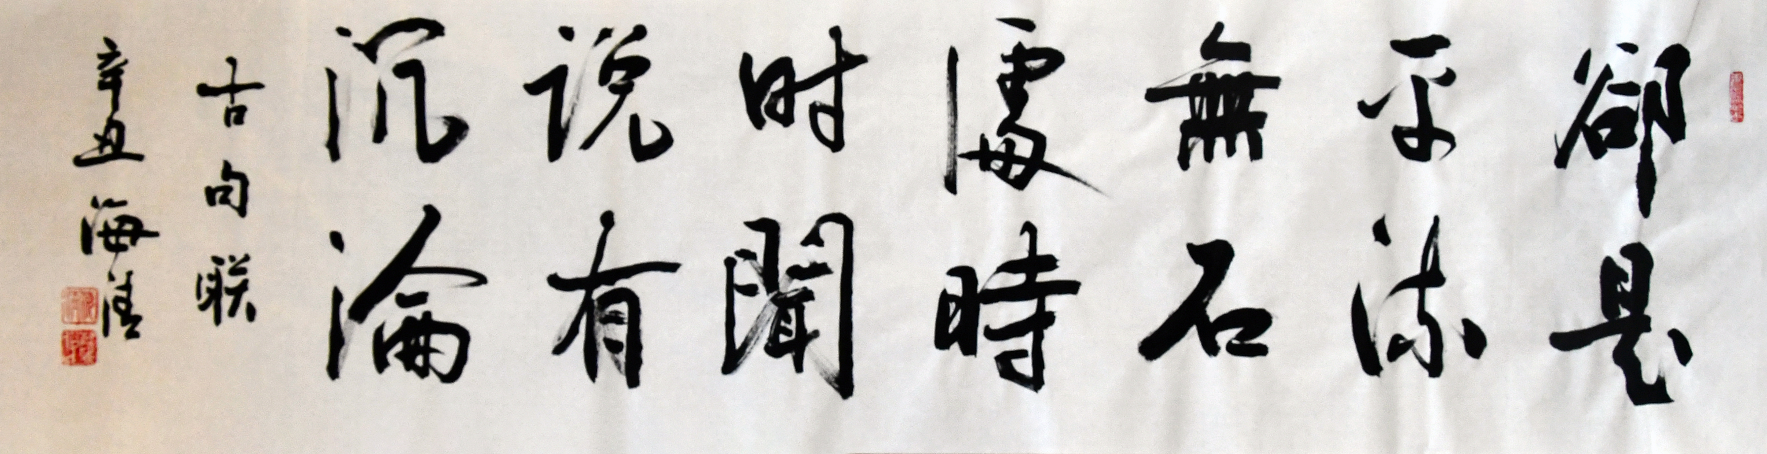 郤是
平流
無石
處時
时聞
说有
沉淪
古句联
辛丑海清